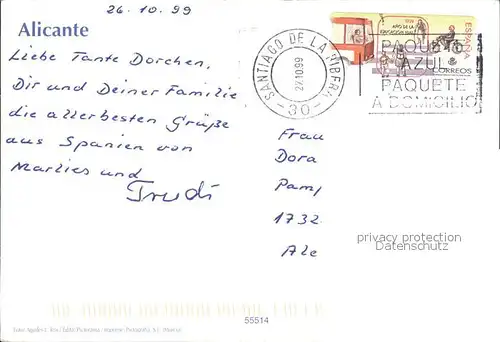 26.10.99
Alicante
Liebe Tante Dorchen,
Dir und Deiner Familie
die allerbesten Grüße
aus Spanien von
Marlies und
Trudi
SANTIAGO DE LA RIBERA
27.10.99
-30-
AÑO DE LA
ESPAÑA
CORREOS
PAQUETE
AZUL
PAQUETE
A DOMICILIO
Frau
Dora
Pam
1732
Ale
privacy protection
Datenschutz
55514